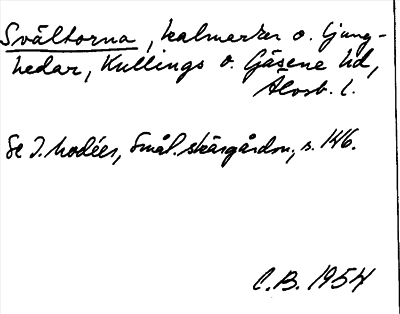 Svältorna, kalmarker o. ljung-
hedar, Kullings o. Gäsene hd,
Älvsb. l.
Se I. Modéer, Smål. skärgårdsn., s. 146.
C.B. 1954